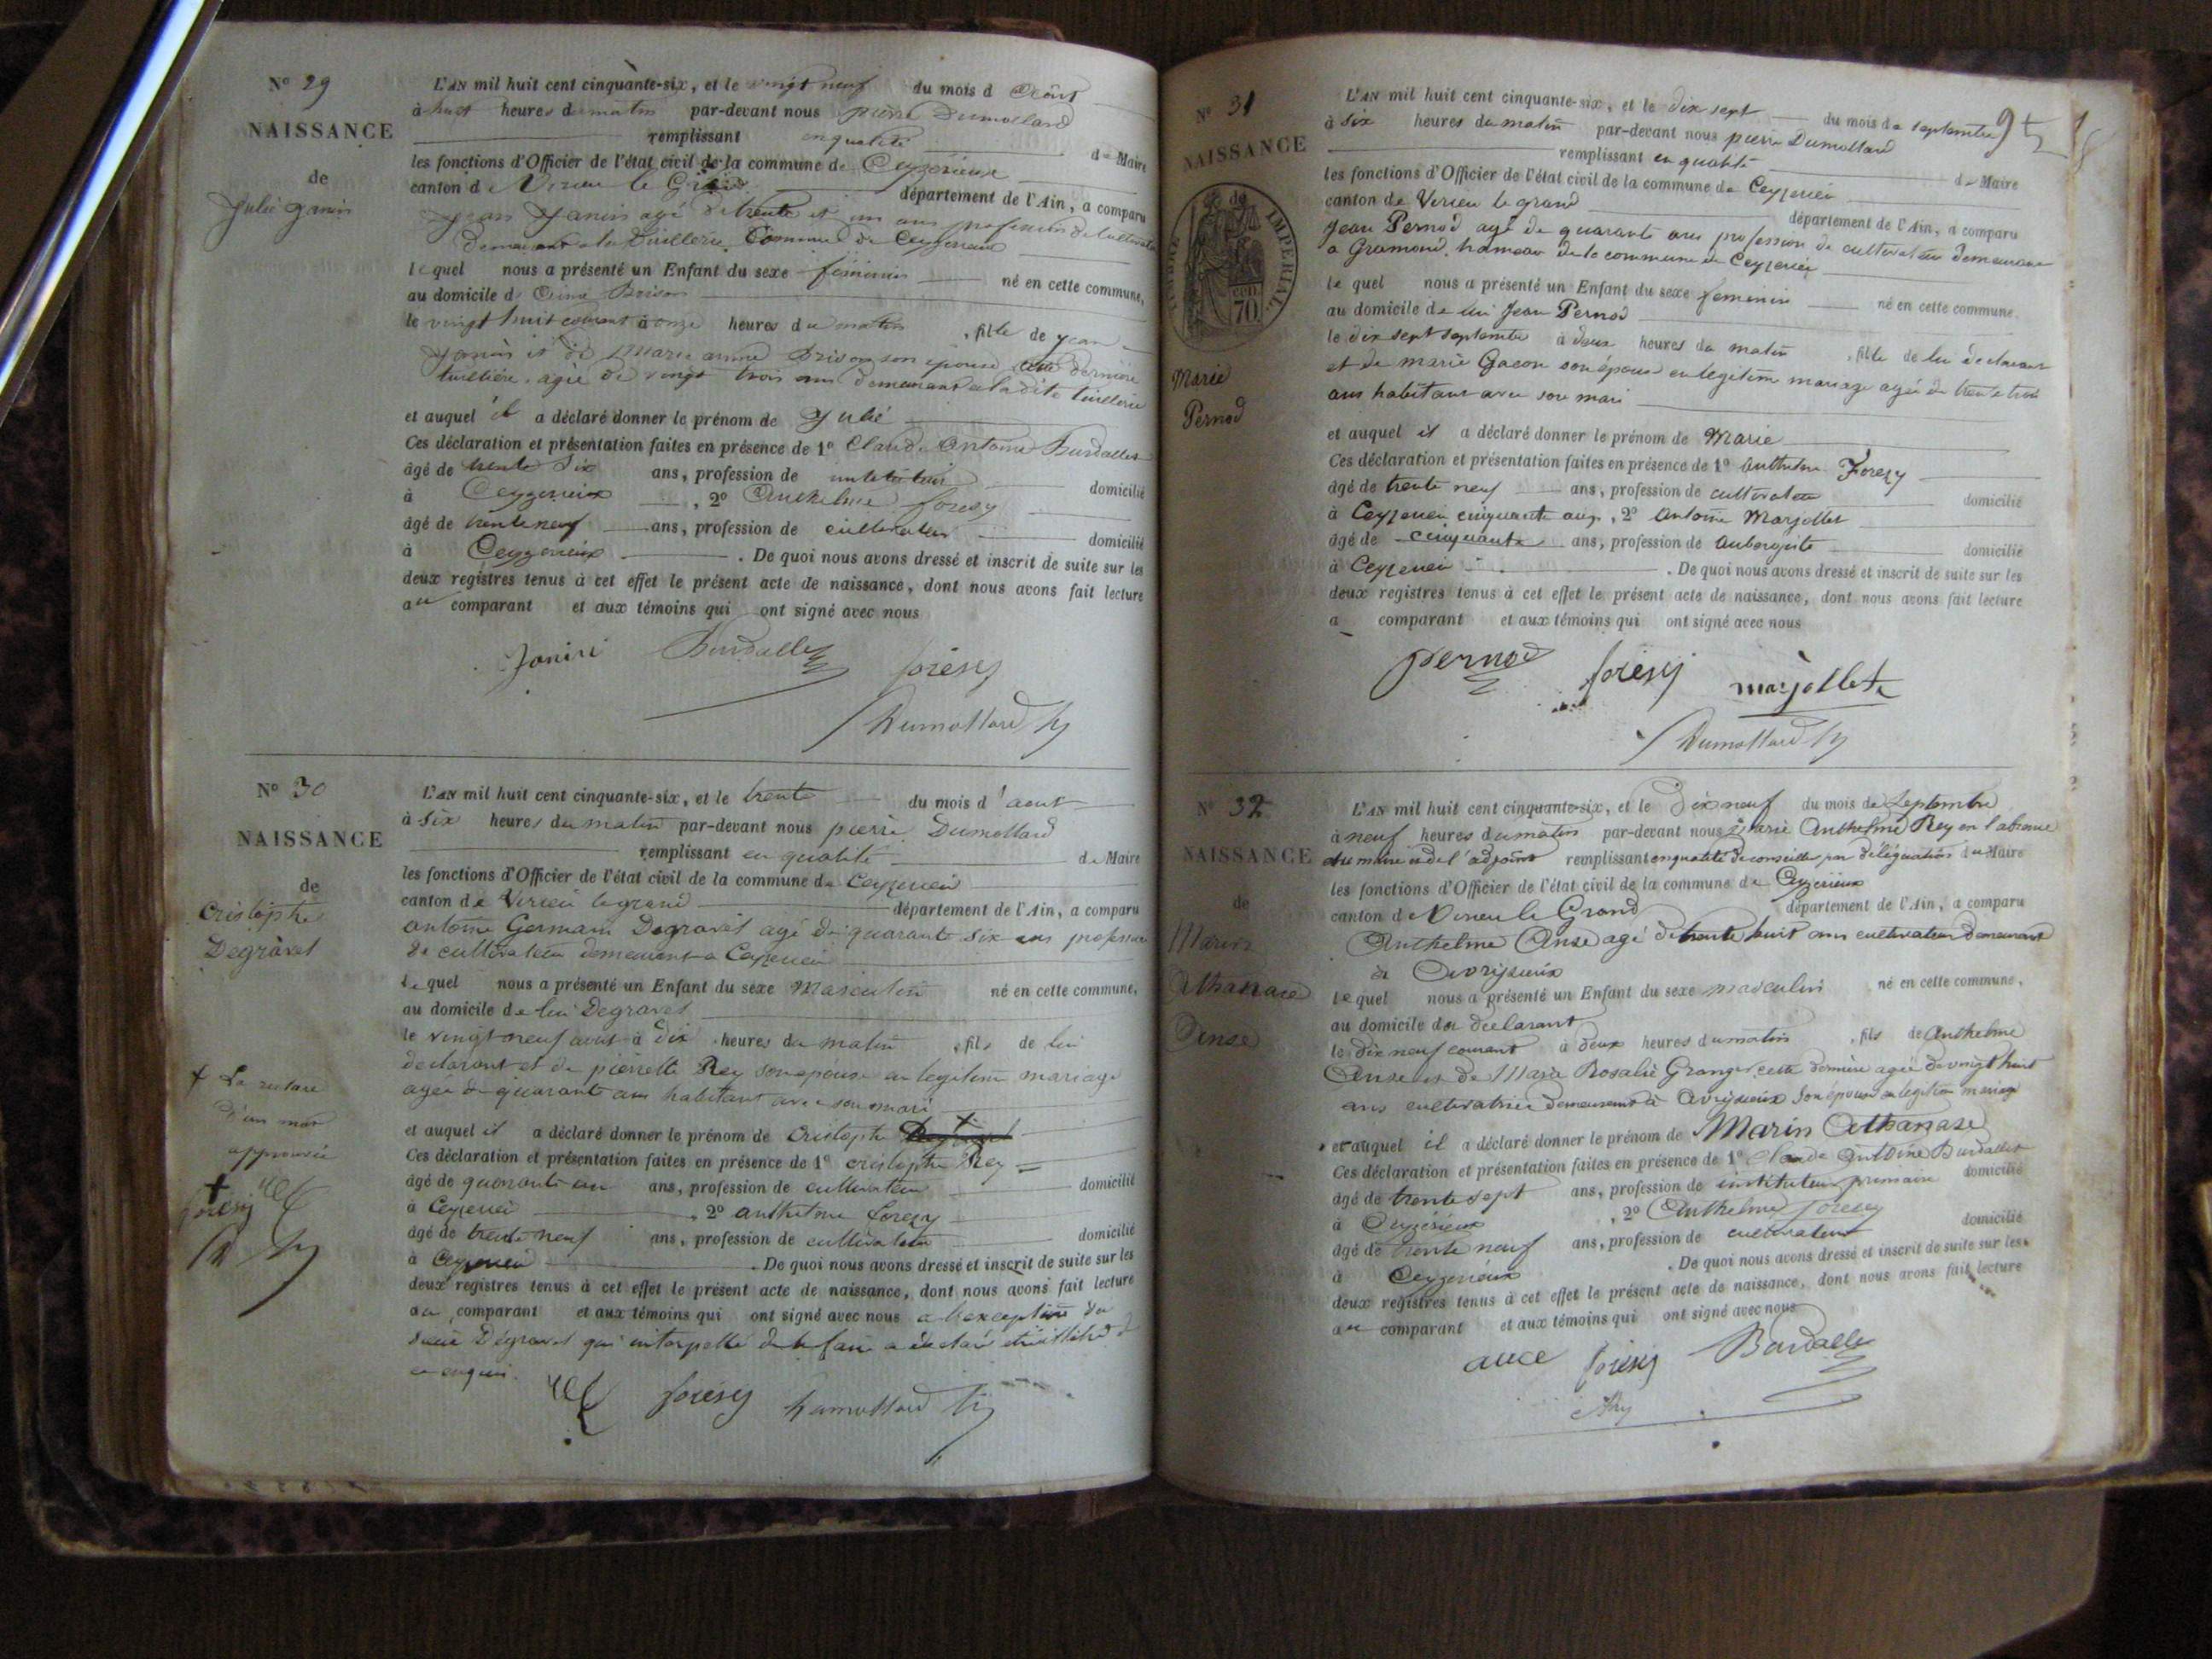 Nº 29
NAISSANCE
de
Julie Janin
L'AN mil huit cent cinquante-six, et le vingt neuf du mois d Août
à huit heures du matin par-devant nous pierre Dumollard
remplissant en qualité de Maire
les fonctions d'Officier de l'état civil de la commune de Ceyzerieux
canton de Virieu le Grand département de l'Ain, a comparu
Jean Janin agé de trente et un ans profession de cultivateur
demeurant a la tuillerie Commune de Ceyzerieux
lequel nous a présenté un Enfant du sexe féminin né en cette commune,
au domicile d Brison
le vingt huit courant à onze heures du matin, fille de Jean
Janin et de Marie anne Brison son épouse cette dernière
tuilière, agée de vingt trois ans demeurant a la dite tuillerie
et auquel il a déclaré donner le prénom de Julie
Ces déclaration et présentation faites en présence de 1º Claude Antoine Burdallet
âgé de trente six ans, profession de instituteur domicilié
à Ceyzerieux, 2º Anthelme forezy
âgé de trente neuf ans, profession de cultivateur domicilié
à Ceyzerieux. De quoi nous avons dressé et inscrit de suite sur les
deux registres tenus à cet effet le présent acte de naissance, dont nous avons fait lecture
au comparant et aux témoins qui ont signé avec nous
Janin Burdallet forésy
Dumollard
Nº 30
NAISSANCE
de
Cristophe
Degravet
L'AN mil huit cent cinquante-six, et le trente du mois d'aout
à six heures du matin par-devant nous pierre Dumollard
remplissant en qualité de Maire
les fonctions d'Officier de l'état civil de la commune de Ceyzerieu
canton de Virieu le grand département de l'Ain, a comparu
antoine Germain Degravet agé de quarante six ans profession
de cultivateur demeurant a Ceyzerieu
lequel nous a présenté un Enfant du sexe Masculin né en cette commune,
au domicile de lui Degravet
le vingt neuf aout à dix heures du matin, fils de lui
declarant et de pierrette Rey son épouse en legitime mariage
agee de quarante ans habitant avec son mari
et auquel il a déclaré donner le prénom de Cristophe
Ces déclaration et présentation faites en présence de 1º cristophe Rey
âgé de quarante un ans, profession de cultivateur domicilié
à Ceyzerieu, 2º anthelme forezy
âgé de trente neuf ans, profession de cultivateur domicilié
à Ceyzerieu. De quoi nous avons dressé et inscrit de suite sur les
deux registres tenus à cet effet le présent acte de naissance, dont nous avons fait lecture
au comparant et aux témoins qui ont signé avec nous a l'exception du
Degravet qui interpellé de le faire a déclaré
ce enquis.
forésy Dumollard
La rature
d'un mot
approuvée
forésy
Nº 31
NAISSANCE
TIMBRE IMPERIAL
cen. 70
Marie
Pernod
95
L'AN mil huit cent cinquante-six, et le dix sept du mois de septembre
à six heures du matin par-devant nous pierre Dumollard
remplissant en qualité de Maire
les fonctions d'Officier de l'état civil de la commune de Ceyzerieu
canton de Virieu le grand département de l'Ain, a comparu
Jean Pernod agé de quarante ans profession de cultivateur demeurant
a Gramond, hameau de la commune de Ceyzerieu
le quel nous a présenté un Enfant du sexe feminin né en cette commune.
au domicile de lui Jean Pernod
le dix sept septembre à deux heures du matin, fille de lui declarant
et de marie Gacon son épouse en legitime mariage agée de trente trois
ans habitant avec son mari
et auquel il a déclaré donner le prénom de Marie
Ces déclaration et présentation faites en présence de 1º anthelme Forezy
âgé de trente neuf ans, profession de cultivateur domicilié
à Ceyzerieu cinquante ans, 2º antoine Marjollet
âgé de cinquante ans, profession de aubergiste domicilié
à Ceyzerieu. De quoi nous avons dressé et inscrit de suite sur les
deux registres tenus à cet effet le présent acte de naissance, dont nous avons fait lecture
a comparant et aux témoins qui ont signé avec nous
pernod forésy marjollet
Dumollard
Nº 32
NAISSANCE
de
Marin
Athanase
Anse
L'AN mil huit cent cinquante-six, et le Dix neuf du mois de Septembre
à neuf heures du matin par-devant nous Marie Anthelme Rey en l'absence
du maire et de l'adjoint remplissant en qualité de conseiller par délégation du Maire
les fonctions d'Officier de l'état civil de la commune de Ceyzerieux
canton de Virieu le Grand département de l'Ain, a comparu
Anthelme Anse agé de trente huit ans cultivateur demeurant
à Avrysieux
lequel nous a présenté un Enfant du sexe masculin né en cette commune,
au domicile du déclarant
le dix neuf courant à deux heures du matin, fils de Anthelme
Anse et de Marie Rosalie Granger, cette dernière agée de vingt huit
ans cultivatrice demeurant à Avrysieux son épouse en legitime mariage
et auquel il a déclaré donner le prénom de Marin Athanase
Ces déclaration et présentation faites en présence de 1º Claude Antoine Burdallet
âgé de trente sept ans, profession de instituteur primaire domicilié
à Ceyzérieux, 2º Anthelme Forezy
âgé de trente neuf ans, profession de cultivateur domicilié
à Ceyzerieux. De quoi nous avons dressé et inscrit de suite sur les
deux registres tenus à cet effet le présent acte de naissance, dont nous avons fait lecture
au comparant et aux témoins qui ont signé avec nous
ance forésy Burdallet
Rey